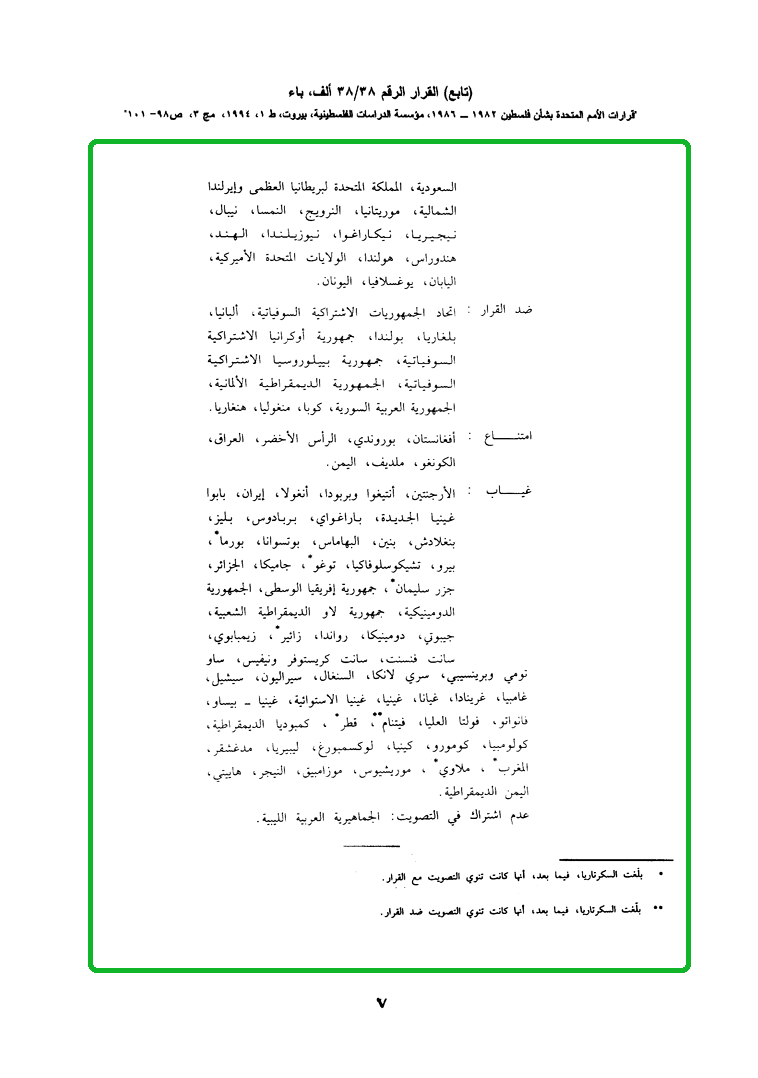 (تابع) القرار الرقم ٣٨/٣٨ ألف، باء
"قرارات الأمم المتحدة بشأن فلسطين ١٩٨٢ – ١٩٨٦، مؤسسة الدراسات الفلسطينية، بيروت، ط ١، ١٩٩٤، مج ٣، ص٩٨- ١٠١"
السعودية، المملكة المتحدة لبريطانيا العظمى وإيرلندا
الشمالية، موريتانيا، النرويج، النمسا، نيبال،
نيجيريا، نيكاراغوا، نيوزيلندا، الهند،
هندوراس، هولندا، الولايات المتحدة الأميركية،
اليابان، يوغسلافيا، اليونان.
ضد القرار : اتحاد الجمهوريات الاشتراكية السوفياتية، ألبانيا،
بلغاريا، بولندا، جمهورية أوكرانيا الاشتراكية
السوفياتية، جمهورية بييلوروسيا الاشتراكية
السوفياتية، الجمهورية الديمقراطية الألمانية،
الجمهورية العربية السورية، كوبا، منغوليا، هنغاريا.
امتنـــاع : أفغانستان، بوروندي، الرأس الأخضر، العراق،
الكونغو، ملديف، اليمن.
غيـــاب : الأرجنتين، أنتيغوا وبربودا، أنغولا، إيران، بابوا
غينيا الجديدة، باراغواي، بربادوس، بليز،
بنغلادش، بنين، البهاماس، بوتسوانا، بورما*،
بيرو، تشيكوسلوفاكيا، توغو*، جاميكا، الجزائر،
جزر سليمان*، جمهورية إفريقيا الوسطى، الجمهورية
الدومينيكية، جمهورية لاو الديمقراطية الشعبية،
جيبوتي، دومينيكا، رواندا، زائير*، زيمبابوي،
سانت فنسنت، سانت كريستوفر ونيفيس، ساو
تومي وبرينسيبي، سري لانكا، السنغال، سيراليون، سيشيل،
غامبيا، غرينادا، غيانا، غينيا، غينيا الاستوائية، غينيا – بيساو،
فانواتو، فولتا العليا، فيتنام**، قطر*، كمبوديا الديمقراطية،
كولومبيا، كومورو، كينيا، لوكسمبورغ، ليبيريا، مدغشقر،
المغرب*، ملاوي*، موريشيوس، موزامبيق، النيجر، هاييتي،
اليمن الديمقراطية.
عدم اشتراك في التصويت: الجماهيرية العربية الليبية.
* بلّغت السكرتاريا، فيما بعد، أنها كانت تنوي التصويت مع القرار.
** بلّغت السكرتاريا، فيما بعد، أنها كانت تنوي التصويت ضد القرار.
٧